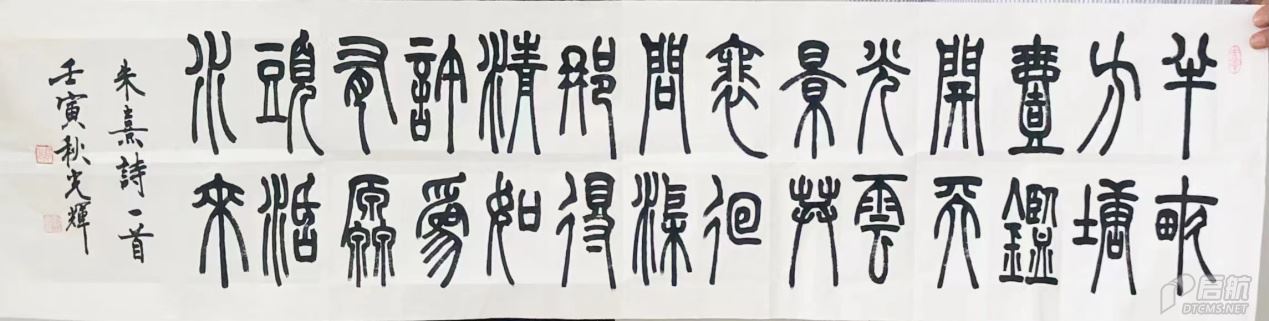 半畝
方塘
壹鑑
開天
光雲
景共
裵徊
問渠
那得
清如
許為
有厵
頭活
水來
朱熹詩一首
壬寅秋光輝
启航
DTCMS.NET